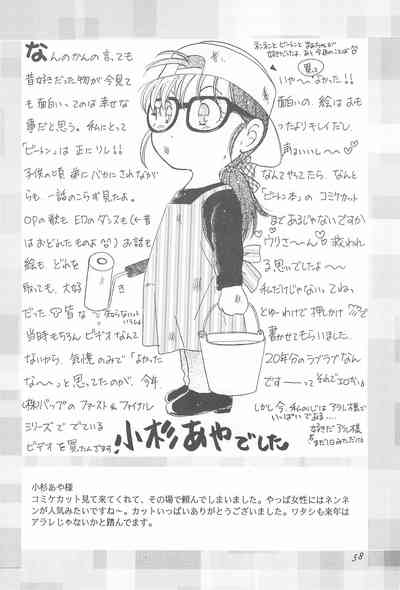 なんのかんの言っても
昔好きだった物が今見て
も面白い、てのは幸せな
事だと思う。私にとって
「ビートン」は正にソレ!!
子供の頃 弟にバカにされながら
らも 一話のこらず見たよ。
OPの歌も EDのダンスも(←昔
はおどれたものよ) お話も
絵も どれを
取っても、大好
だった
知らないの
いろいろ
当時もちろん ビデオなんて
ないから、気憶のみで「よかった
な〜」と思ってたのが、今年
(株)バップのファースト&ファイナル
シリーズで でている
ビデオを買ったんです
ネンネンとビートンと
好きだったよ。
買って
いや〜よかった!!
面白い。絵はおも
ったよりキレイだし
声はいいし〜
なんてやってたら、なんと
「ビートン本」のコミケカット
まであるじゃないですか
ウリさ〜ん 救われ
る思いでしたよ〜〜
私だけじゃない。てね。
とゆーわけで押しかけ
書かせてもらいました。
20年分のラブラブなん
です――ってそれでエロかい
しかし今、私の心はアラレ様で
いっぱいである…
好きだ アラレ様
まだ1日みただけ
小杉あやでした
小杉あや様
コミケカット見て来てくれて、その場で頼んでしまいました。やっぱ女性にはネンネ
ンが人気みたいですね〜。カットいっぱいありがとうございました。ワタシも来年は
アラレじゃないかと踏んでます。
58